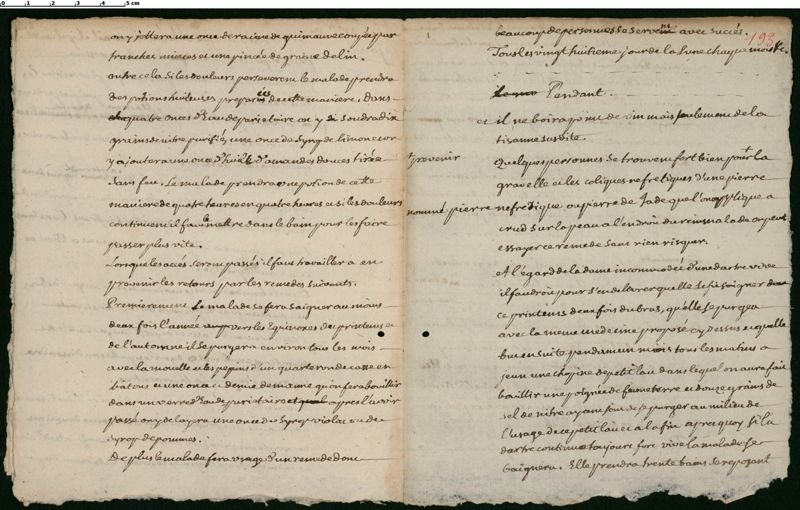 on y jottera une once de racine de guimauve coupée par
tranches minces et une pincée de graine de lin.
outre cela si les douleurs perseverent le malade prendra
des potions huileuses preparées de cette maniere. Dans
quatre onces d'Eau de parietaire on y dissoudra dix
grains de nitre purifié, une once de Syrop de limon et on
y ajoutera une once d'huile d'amandes douces tirée
Sans feu. Le malade prendra une potion de cette
maniere de quatre heures en quatre heures et si les douleurs
continuent il faut le mettre dans le bain pour les faire
passer plus vite.
Lorsque les accès seront passés il faut travailler a en
prevenir les retours par les remedes suivants.
Premierement le malade se fera saigner au moins
deux fois l'année vers les Equinoxes du printems et
de l'automne il se purgera environ tous les mois
avec la mouelle et les pepins d'un quarteron de casse en
batons et une once et demie de manne qu'on fera bouillir
dans un verre d'Eau de parietaire et apres l'avoir
passé on y delayera une once de Syrop violat ou de
Syrop de pommes.
De plus le malade fera usage d'un remede dont
beaucoup de personnes se servent avec succés.
193
Tous les vingt huitieme jour de la lune chaque mois &c.
Pendant.
et il ne boira point de vin mais seulement de la
tisanne susdite.
prevenir
Quelques personnes se trouvent fort bien pour la
gravelle et les coliques nefretiques d'une pierre
nommé pierre nefretique ou pierre de Jade que l'on applique a
crud sur la peau a l'endroit du rein malade on peut
essayer ce remede sans rien risquer.
Et l'égard de la dame incommodée d'une dartre vive
il faudroit pour s'en delivrer quelle se fit saigner
ce printems deux fois du bras, qu'elle se purgea
avec la meme medecine proposé cy dessus et quelle
but ensuite pendant un mois tous les matins a
jeun une chopine de petit lait dans lequel on aura fait
bouillir une poignée de fumeterre et douze grains de
sel de nitre ayant soin de se purger au milieu de
l'usage de ce petit lait et a la fin apres quoy si la
dartre continue toujours fort vive la malade se
baignera. Elle prendra trente bains se reposant